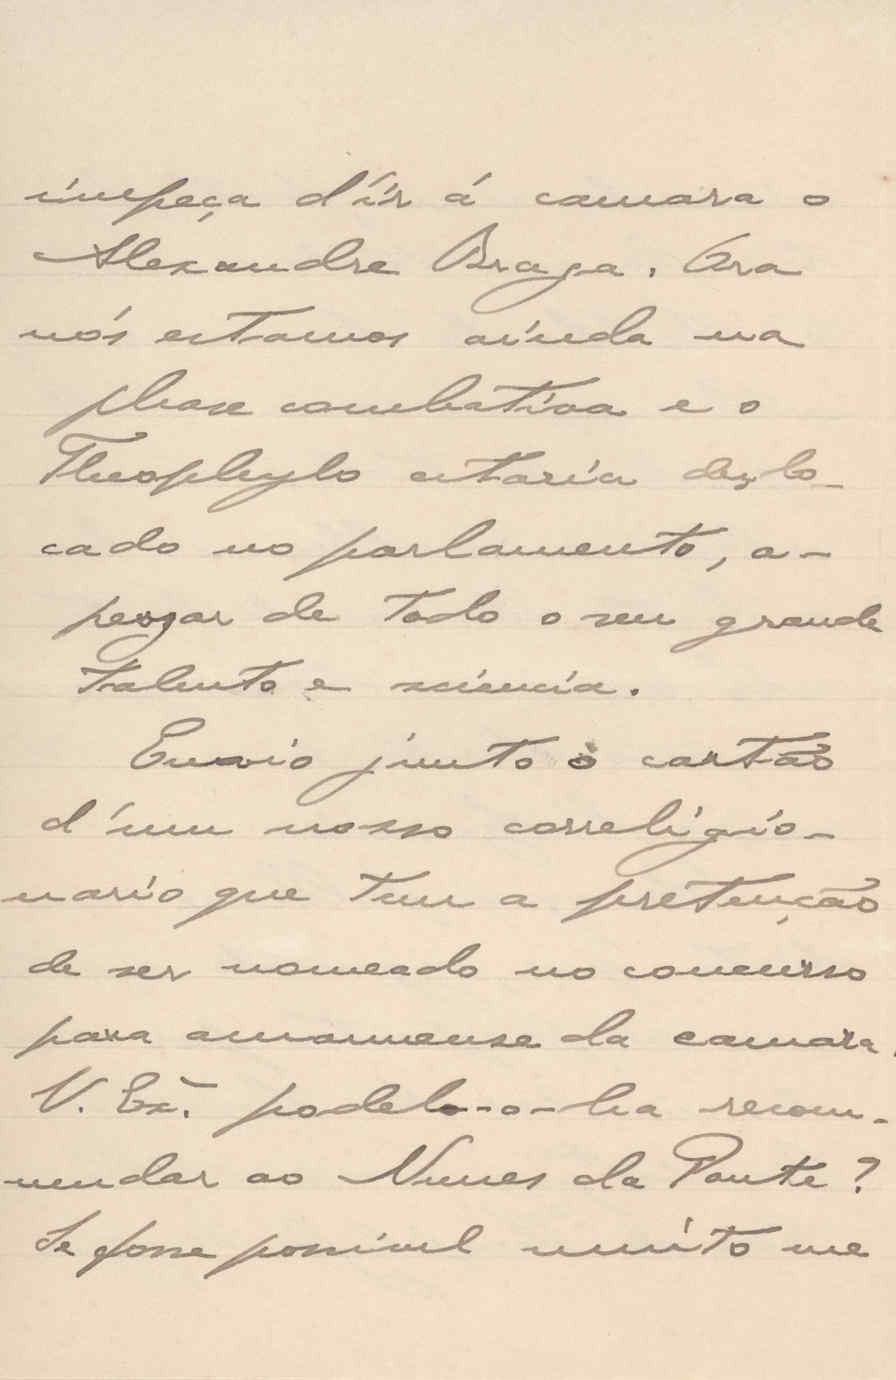 impeça d'ír á camara o
Alexandre Braga. Ora
nós estamos ainda na
phase combativa e o
Theophylo estaria deslo-
cado no parlamento, a-
pezar de todo o seu grande
talento e sciencia.
Envio junto o cartão
d'um nosso correligio-
nario que tem a pretenção
de ser nomeado no concurso
para amanuense da camara.
V. Exª. podel-o-ha recom-
mendar ao Nunes da Ponte?
Se fosse possivel muito me